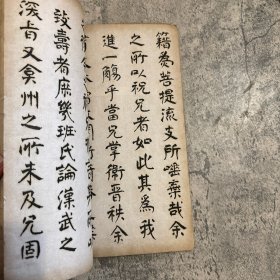 籍為菩提流支所唾棄哉余
之所以祝兄者如此其為我
進一觴乎當兄掌衡晉秩余
致壽者庶幾班氏論漢武之
深旨又弇州之所未及兄固